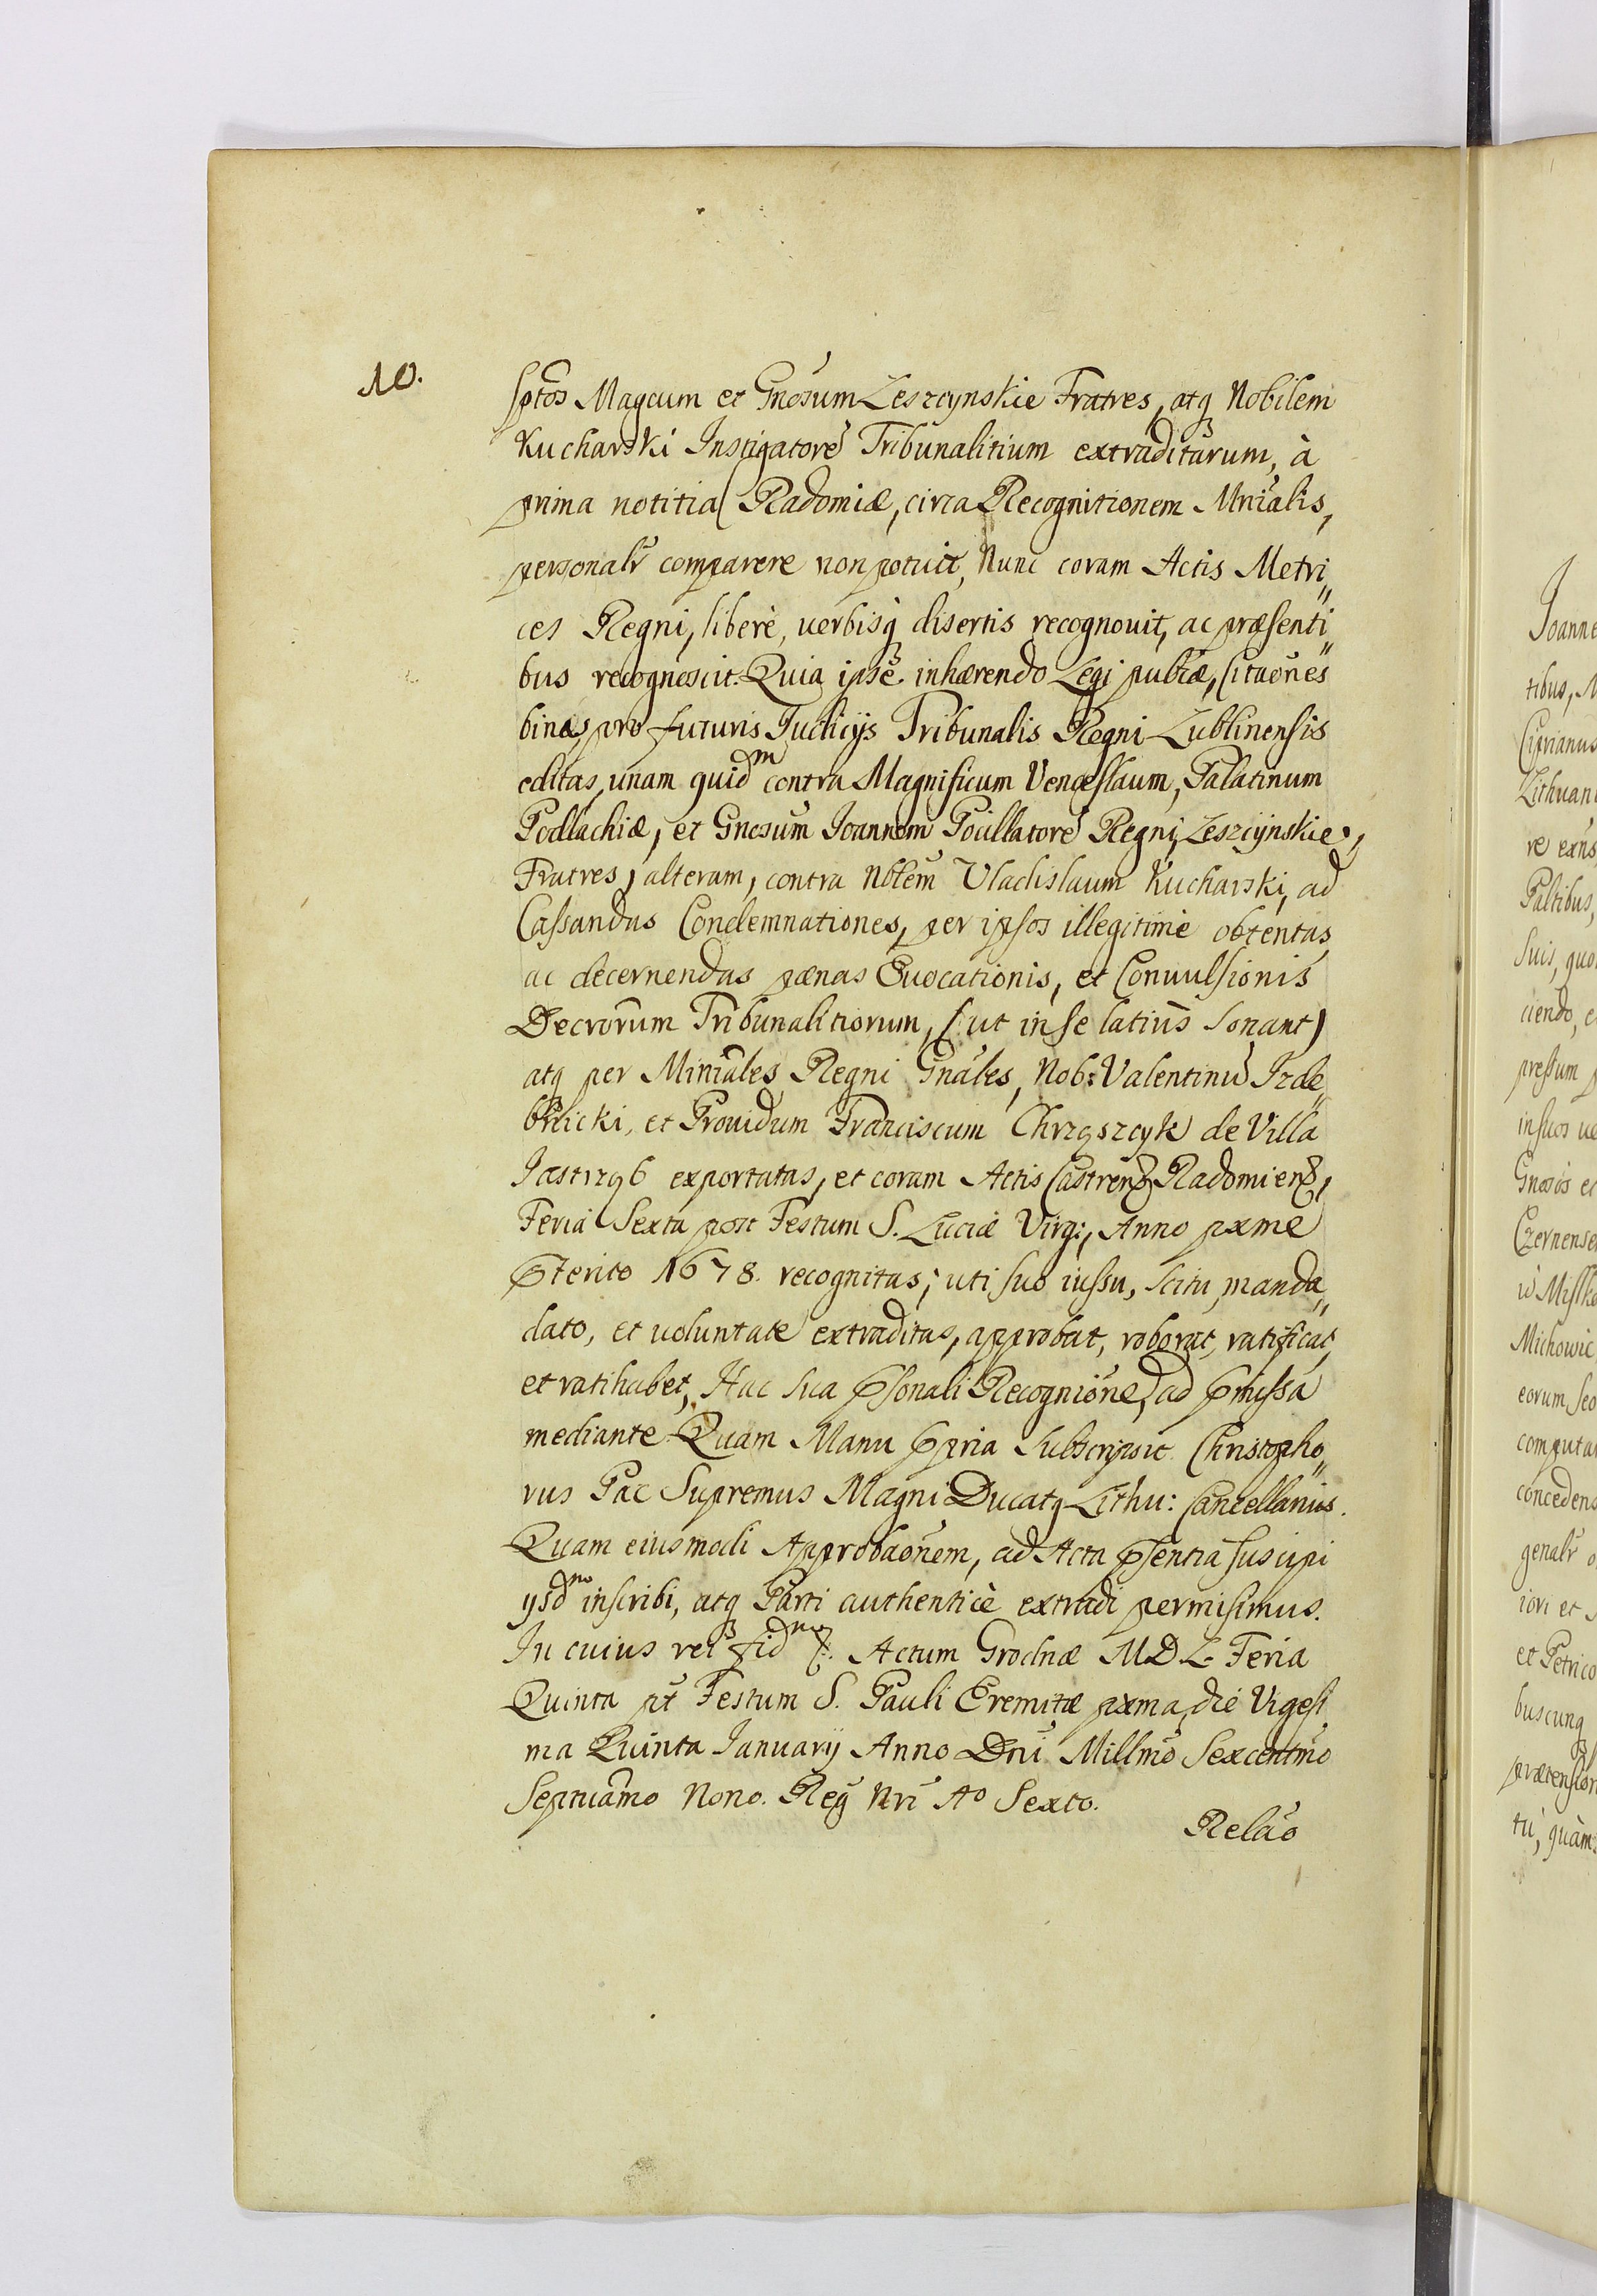 10.
sptos Magcum et Gnosum Leszcynskie Fratres, atq Nobilem
Kucharski Instigatorē Tribunalitium extraditarum, à
prima notitia Radomiæ, circa Recognitionem Mnialis,
personalr comparere non potuit, Nunc coram Actis Metri„
ces Regni, liberè, uerbisq disertis recognouit, ac præsenti„
bus recognoscit. Quia ipse inhærendo Legi publcæ, Citaōnes
binas pro futuris Iudicijs Tribunalis Regni Lublinensis
editas, unam quidm contra Magnificum Venceslaum, Palatinum
Podlachiæ, et Gnosum Ioannem Pocillatorē Regni, Leszcijnskie,
Fratres, alteram, contra Nblem Vladislaum Kucharski, ad
Cassandas Condemnationes, per ipsos illegitimè obtentas,
ac decernendas pænas Euocationis, et Conuulsionis
Decrorum Tribunalitiorum, (ut in se latius sonant)
atq per Minrāles Regni Gnāles, Nob: Valentinū Izde„
bnicki, et Prouidum Franciscum Chrząszczyk de Villa
Jastrząb exportatas, et coram Actis Castrens Radomiens,
Feria Sexta post Festum S. Luciæ Virg:, Anno pxme
pterito 1678. recognitas; uti suo iussu, scitu, manda„
dato, et uoluntate extraditas, approbat, roborat, ratificat,
et ratihabet, Hac sua psonali Recogniōne, ad pmissa
mediante. Quam Manu ppria Subscripsit. Christopho„
rus Pac Supremus Magni Ducatq Lithu: Cancellarius.
Quam eiusmodi Approbaōnem, ad Acta psentia suscipi
ysdm inscribi, atq Parti authenticè extradi permisimus.
In cuius rei fidm &. Actum Grodnæ M D L. Feria
Quinta pt Festum S. Pauli Eremitæ pxma, die Vigesi
ma Quinta Ianuarij Anno Dni Millmo Sexcentmo
Septuāmo Nono. Reg Nri Ao Sexto.
Relāo
Joanne
tibus, M
Ciprianus
Lithuani
re exns
Paltibus,
suis, quo
ciendo, e
pressum p
in suos ue
Gnosos et
Czernense
Michowic
eorum, seo
computa
concedens
genalr o
iori et
et Petrico
buscunq
prætension
tū, quàm